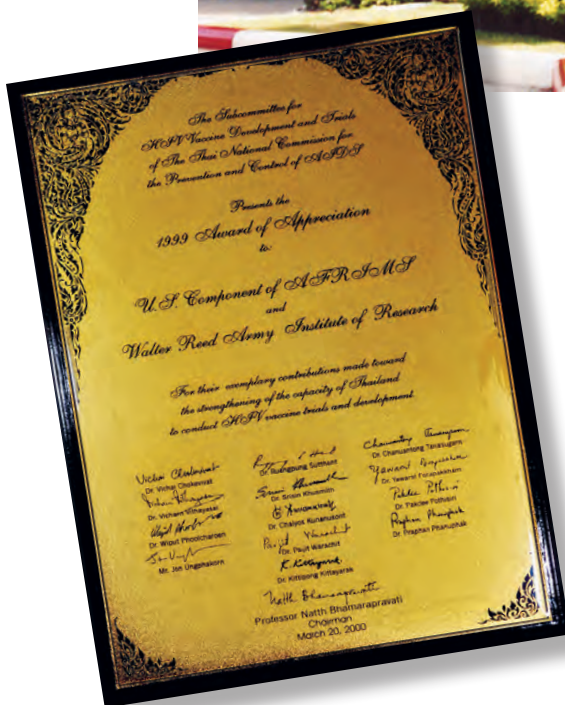 The Subcommittee for
HIV Vaccine Development and Trials
of The Thai National Commission for
the Prevention and Control of AIDS
Presents the
1999 Award of Appreciation
to:
U.S. Component of AFRIMS
and
Walter Reed Army Institute of Research
For their exemplary contributions made toward
the strengthening of the capacity of Thailand
to conduct HIV vaccine trials and development.
Vichai Chokevivat
Dr. Vichai Chokevivat
Dr. Vicharn Vithayasai
Dr. Wiput Phoolcharoen
Mr. Jon Ungphakorn
Dr. Suebpong
Dr. Srison Khusmith
Dr. Chaiyos Kunanusont
Dr. Paijit Warachit
K. Kittayarak
Dr. Kittipong Kittayarak
Dr. Chanuantong Tanasugarn
Dr. Yawarat
Dr. Pakdee Pothisiri
Dr. Praphan Phanuphak
Natth Bhamarapravati
Professor Natth Bhamarapravati
Chairman
March 20, 2000